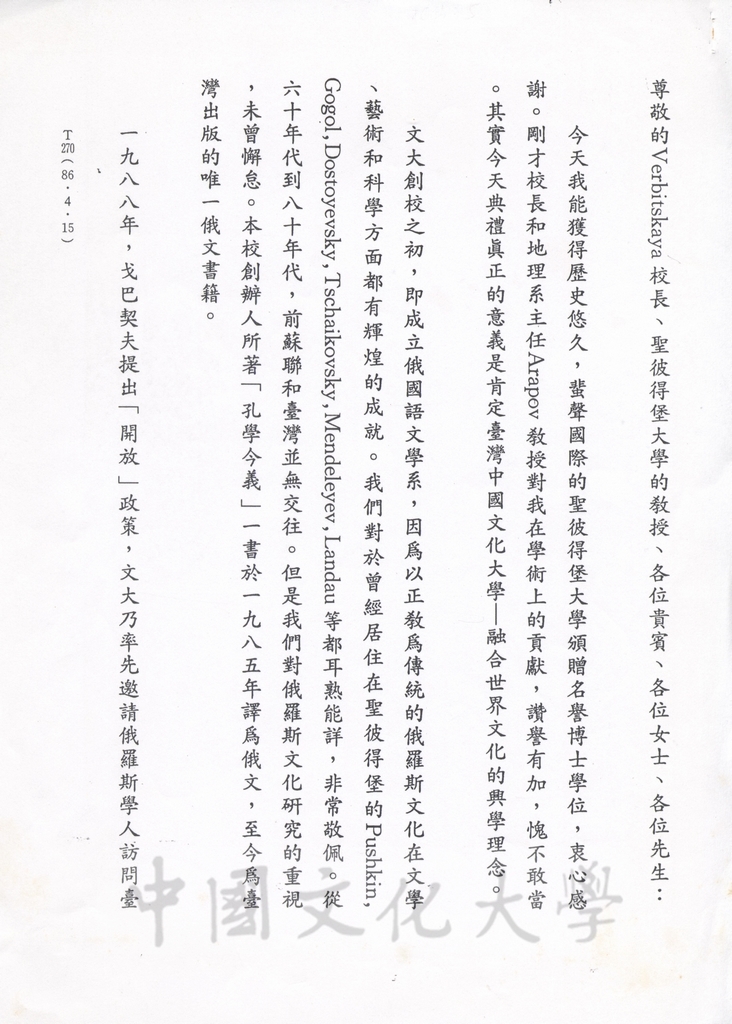 尊敬的Verbitskaya校長、聖彼得堡大學的教授、各位貴賓、各位女士、各位先生：
今天我能獲得歷史悠久，蜚聲國際的聖彼得堡大學頒贈名譽博士學位，衷心感
謝。剛才校長和地理系主任Arapov教授對我在學術上的貢獻，讚譽有加，愧不敢當
。其實今天典禮眞正的意義是肯定臺灣中國文化大學—融合世界文化的興學理念。
文大創校之初，即成立俄國語文學系，因爲以正教爲傳統的俄羅斯文化在文學
、藝術和科學方面都有輝煌的成就。我們對於曾經居住在聖彼得堡的Pushkin,
Gogol, Dostoyevsky, Tschaikovsky, Mendeleyev, Landau等都耳熟能詳，非常敬佩。從
六十年代到八十年代，前蘇聯和臺灣並無交往。但是我們對俄羅斯文化研究的重視
，未曾懈怠。本校創辦人所著「孔學今義」一書於一九八五年譯爲俄文，至今爲臺
灣出版的唯一俄文書籍。
一九八八年，戈巴契夫提出「開放」政策，文大乃率先邀請俄羅斯學人訪問臺
T270(86.4.15)
中國文化大學